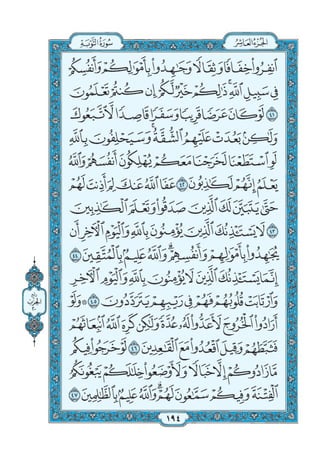 الجُزْءُ العَاشِرُ سُورَةُ التَّوْبَةِ
ٱنفِرُوا۟ خِفَافًا وَثِقَالًا وَجَٰهِدُوا۟ بِأَمْوَٰلِكُمْ وَأَنفُسِكُمْ
فِى سَبِيلِ ٱللَّهِ ذَٰلِكُمْ خَيْرٌ لَّكُمْ إِن كُنتُمْ تَعْلَمُونَ
٤١ لَوْ كَانَ عَرَضًا قَرِيبًا وَسَفَرًا قَاصِدًا لَّٱتَّبَعُوكَ
وَلَٰكِنۢ بَعُدَتْ عَلَيْهِمُ ٱلشُّقَّةُ وَسَيَحْلِفُونَ بِٱللَّهِ
لَوِ ٱسْتَطَعْنَا لَخَرَجْنَا مَعَكُمْ يُهْلِكُونَ أَنفُسَهُمْ وَٱللَّهُ
يَعْلَمُ إِنَّهُمْ لَكَٰذِبُونَ ٤٢ عَفَا ٱللَّهُ عَنكَ لِمَ أَذِنتَ لَهُمْ
حَتَّىٰ يَتَبَيَّنَ لَكَ ٱلَّذِينَ صَدَقُوا۟ وَتَعْلَمَ ٱلْكَٰذِبِينَ
٤٣ لَا يَسْتَـْٔذِنُكَ ٱلَّذِينَ يُؤْمِنُونَ بِٱللَّهِ وَٱلْيَوْمِ ٱلْءَاخِرِ أَن
يُجَٰهِدُوا۟ بِأَمْوَٰلِهِمْ وَأَنفُسِهِمْ وَٱللَّهُ عَلِيمٌۢ بِٱلْمُتَّقِينَ ٤٤
إِنَّمَا يَسْتَـْٔذِنُكَ ٱلَّذِينَ لَا يُؤْمِنُونَ بِٱللَّهِ وَٱلْيَوْمِ ٱلْءَاخِرِ
وَٱرْتَابَتْ قُلُوبُهُمْ فَهُمْ فِى رَيْبِهِمْ يَتَرَدَّدُونَ ٤٥ وَلَوْ
أَرَادُوا۟ ٱلْخُرُوجَ لَأَعَدُّوا۟ لَهُۥ عُدَّةً وَلَٰكِن كَرِهَ ٱللَّهُ ٱنۢبِعَاثَهُمْ
فَثَبَّطَهُمْ وَقِيلَ ٱقْعُدُوا۟ مَعَ ٱلْقَٰعِدِينَ ٤٦ لَوْ خَرَجُوا۟ فِيكُم
مَّا زَادُوكُمْ إِلَّا خَبَالًا وَلَأَوْضَعُوا۟ خِلَٰلَكُمْ يَبْغُونَكُمُ
ٱلْفِتْنَةَ وَفِيكُمْ سَمَّٰعُونَ لَهُمْ وَٱللَّهُ عَلِيمٌۢ بِٱلظَّٰلِمِينَ ٤٧
١٩٤